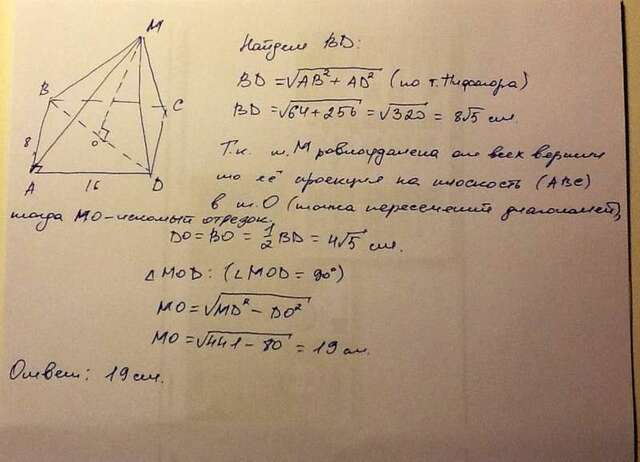 M
B
C
8
O
A
16
D
Найдем BD:
BD = √AB² + AD² (по т. Пифагора)
BD = √64 + 256 = √320 = 8√5 см.
Т.к. т. M равноудалена от всех вершин
то её проекция на плоскость (ABC)
в т. O (точка пересечения диагоналей),
тогда MO - искомый отрезок.
DO = BO = 1/2 BD = 4√5 см.
△MOD: (∠MOD = 90°)
MO = √MD² - DO²
MO = √441 - 80 = 19 см.
Ответ: 19 см.